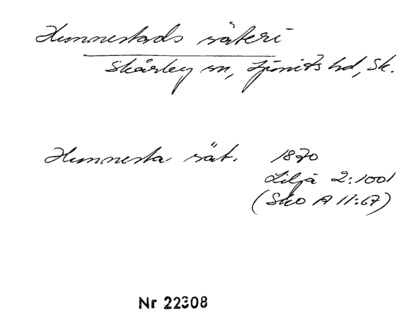 Hunnestads säteri
Skårby sn, Ljunits hd, Sk.
Hunnesta sät. 1870
Lilja 2:1001
(Sko A 11:67)
Nr 22308